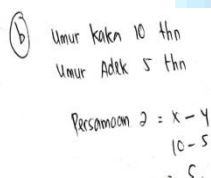 b Umur kakn 10 thn
Umur Adek 5 thn
Persamaan 2 = x - y
10 - 5
= 5